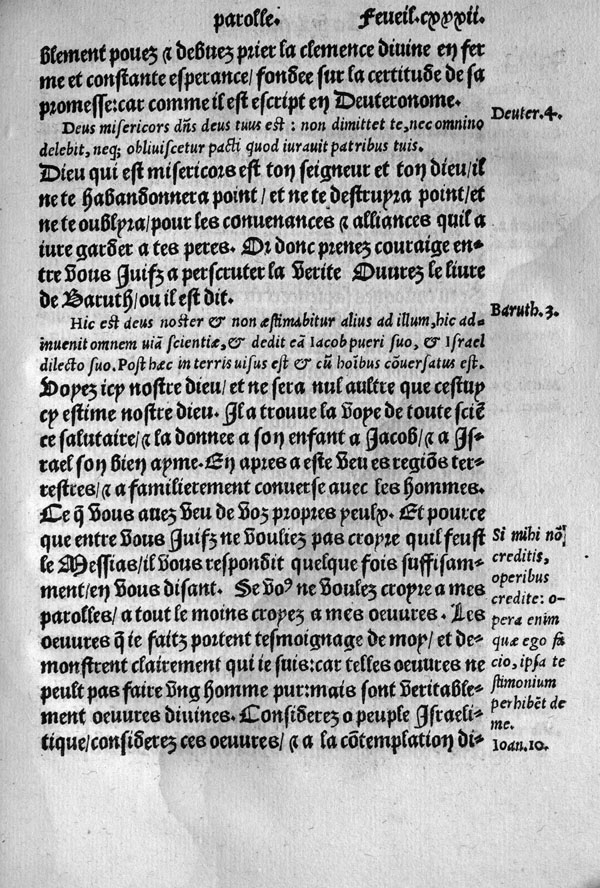 parolle. Feueil.cxxxii.
blement pouez & debuez prier la clemence diuine en fer
me et constante esperance/ fondee sur la certitude de sa
promesse:car comme il est escript en Deuteronome.
Deus misericors dn̄s deus tuus est : non dimittet te, nec omnino
delebit, neq; obliuiscetur pacti quod iurauit patribus tuis.
Deuter.4.
Dieu qui est misericors est ton seigneur et ton dieu/il
ne te habandonnera point/ et ne te destruyra point/et
ne te oublyra/pour les conuenances & alliances quil a
iure garder a tes peres. Or donc prenez couraige en-
tre vous Juifz a perscruter la verite Ouurez le liure
de Baruth/ou il est dit.
Baruth.3.
Hic est deus noster & non æstimabitur alius ad illum, hic ad-
inuenit omnem uiā scientiæ, & dedit eā Iacob pueri suo, & Israel
dilecto suo. Post hæc in terris uisus est & cū hoībus cōuersatus est.
Voyez icy nostre dieu/ et ne sera nul aultre que cestuy
cy estime nostre dieu. Il a trouue la voye de toute sciē
ce salutaire/& la donnee a son enfant a Jacob/& a Js-
rael son bien ayme. En apres a este veu es regiōs ter-
restres/& a familierement conuerse auec les hommes.
Ce q̄ vous auez veu de voz propres yeulx. Et pource
que entre vous Juifz ne vouliez pas croyre quil feust
le Messias/il vous respondit quelque fois suffisam-
ment/en vous disant. Se vo⁹ ne voulez croyre a mes
parolles/ a tout le moins croyez a mes oeuures. Les
oeuures q̄ ie faitz portent tesmoignage de moy/ et de-
monstrent clairement qui ie suis:car telles oeuures ne
peult pas faire vng homme pur:mais sont veritable-
ment oeuures diuines. Considerez o peuple Israeli-
tique/considerez ces oeuures/ & a la cōtemplation di-
Si mihi nō
creditis,
operibus
credite: o-
pera enim
quæ ego fa
cio, ipsa te
stimonium
perhibēt de
me.
Ioan.10.